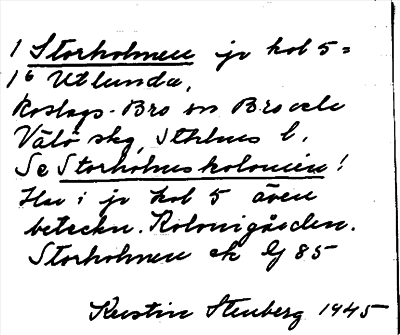 1 Storholmen jr kol 5 =
1⁶ Utlunda,
Roslags-Bro sn Bro och
Vätö skg, Sthlms l.
Se Storholmskolonin!
Har i jr kol 5 även
beteckn. Kolonigården.
Storholmen ek bl 85
Kerstin Stenberg 1945